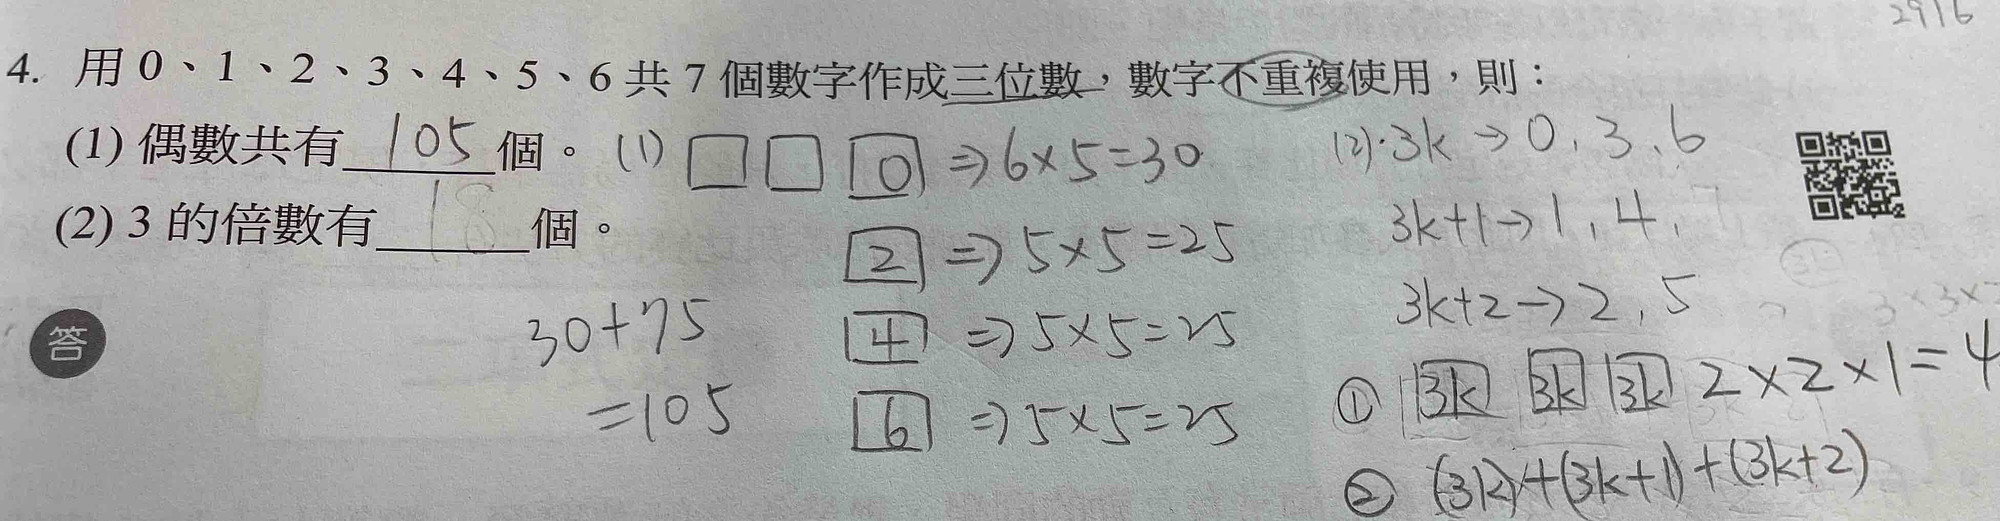 2916
4. 用 0、1、2、3、4、5、6 共 7 個數字作成三位數，數字不重複使用，則：
(1) 偶數共有 105 個。
(2) 3 的倍數有 18 個。
答
30+75
=105
(1) □ □ 0 ⇒ 6×5=30
2 ⇒ 5×5=25
4 ⇒ 5×5=25
6 ⇒ 5×5=25
(2)·3k → 0、3、6
3k+1 → 1、4、7
3k+2 → 2、5
① 3k 3k 3k 2×2×1=4
② (3k)+(3k+1)+(3k+2)